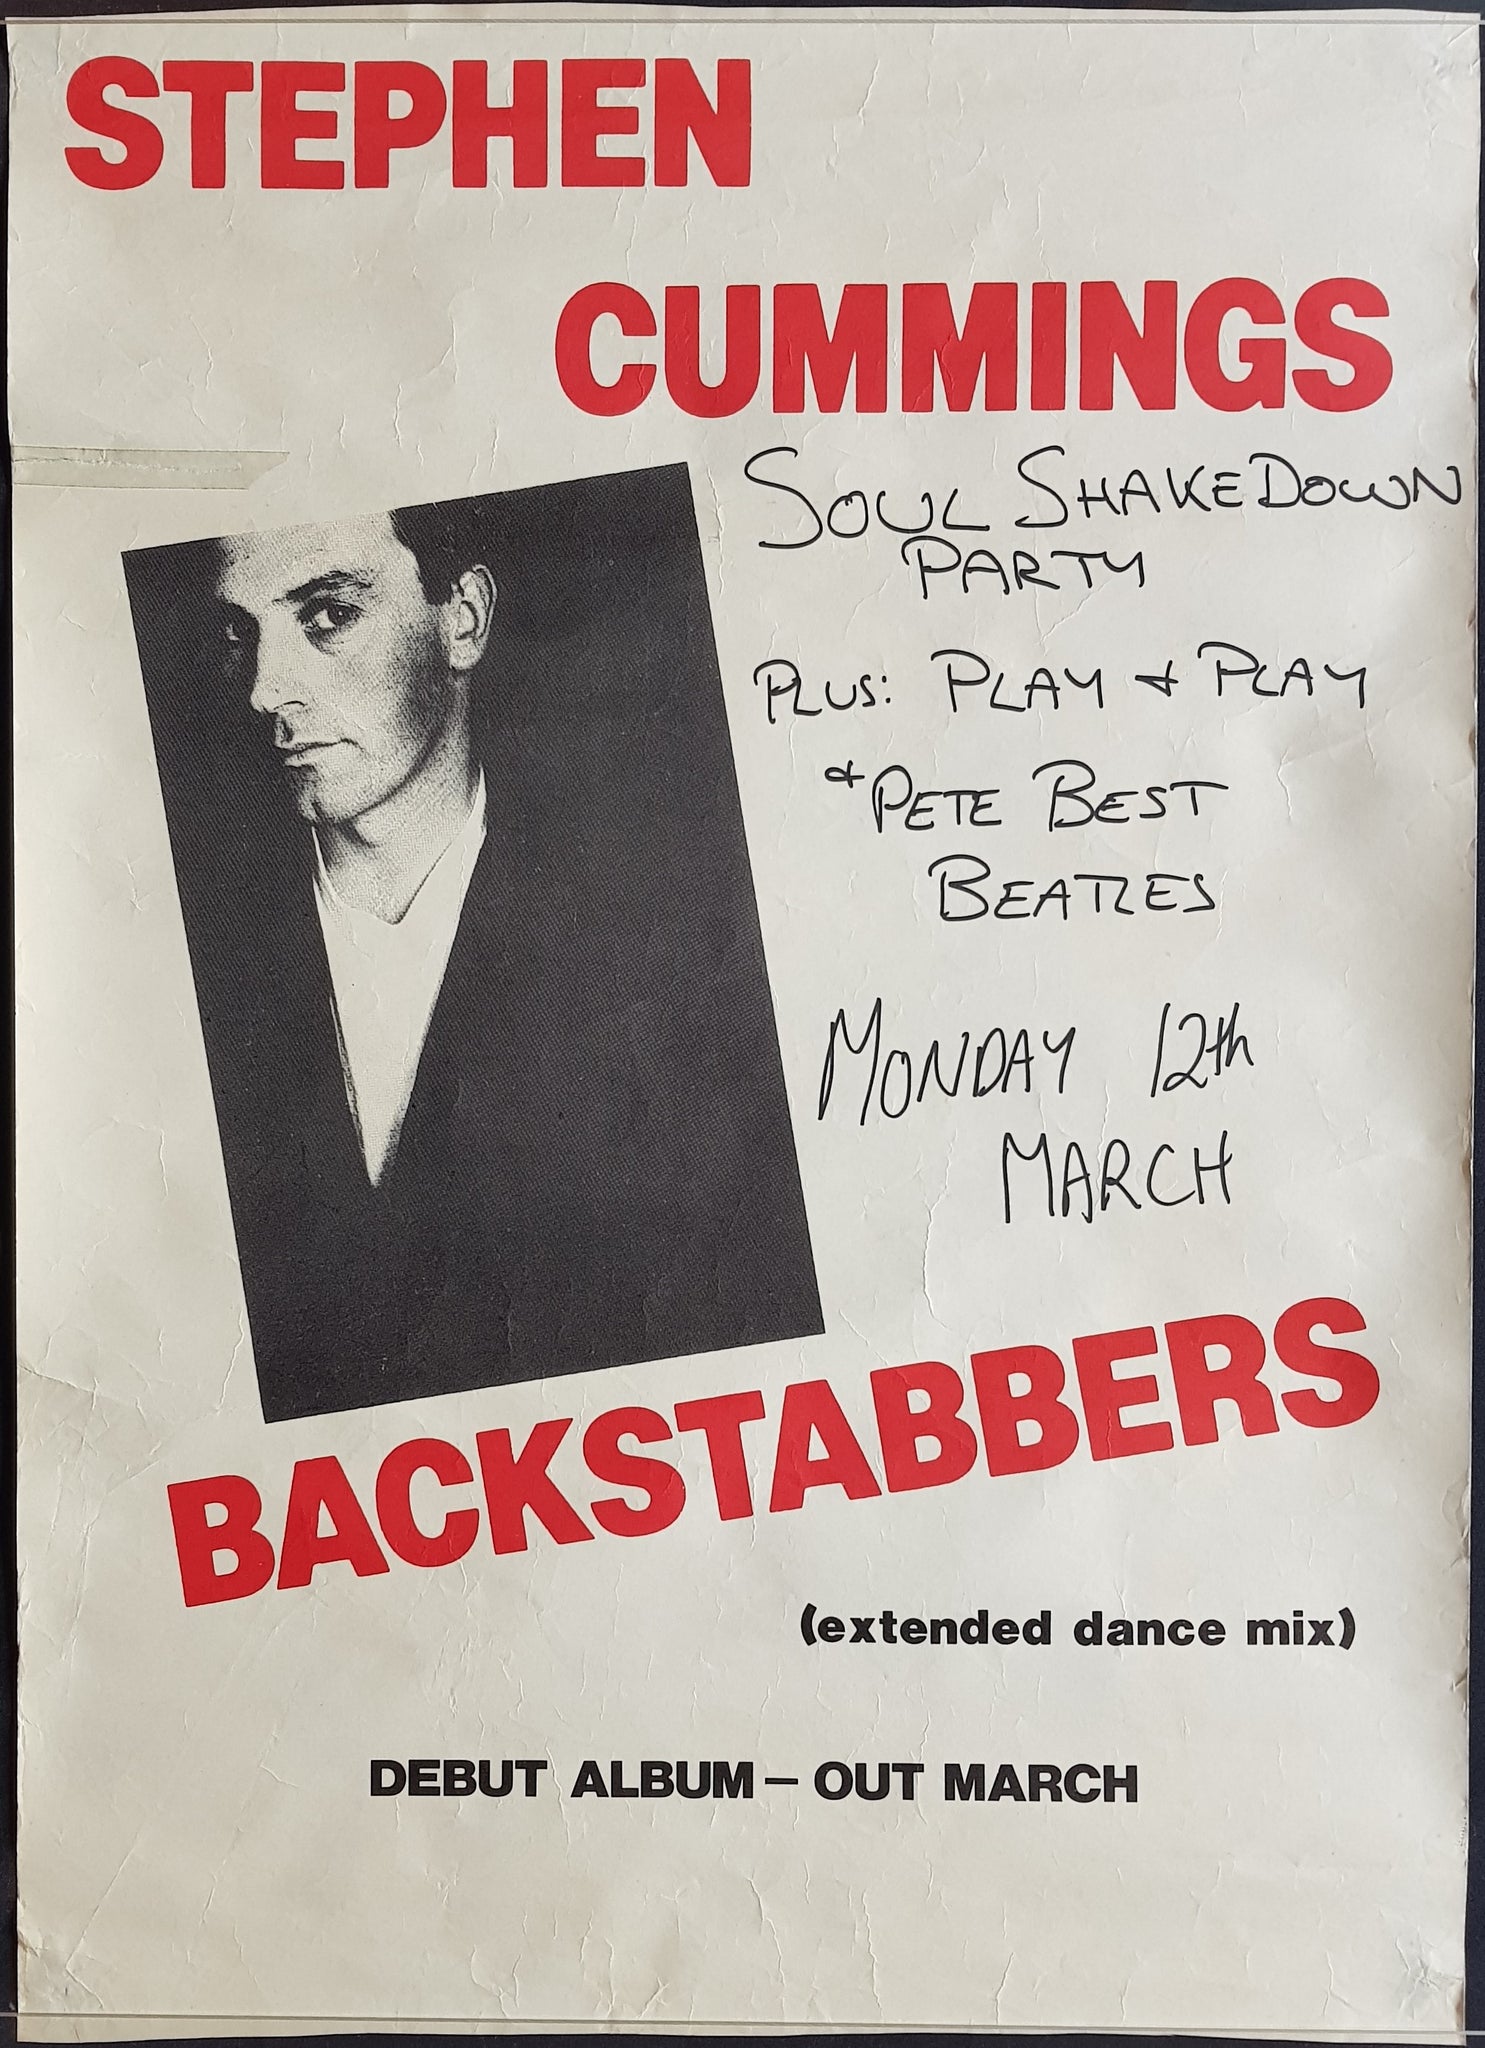 STEPHEN
CUMMINGS
SOUL SHAKEDOWN
PARTY
PLUS: PLAY & PLAY
& PETE BEST
BEATLES
MONDAY 12th
MARCH
BACKSTABBERS
(extended dance mix)
DEBUT ALBUM — OUT MARCH